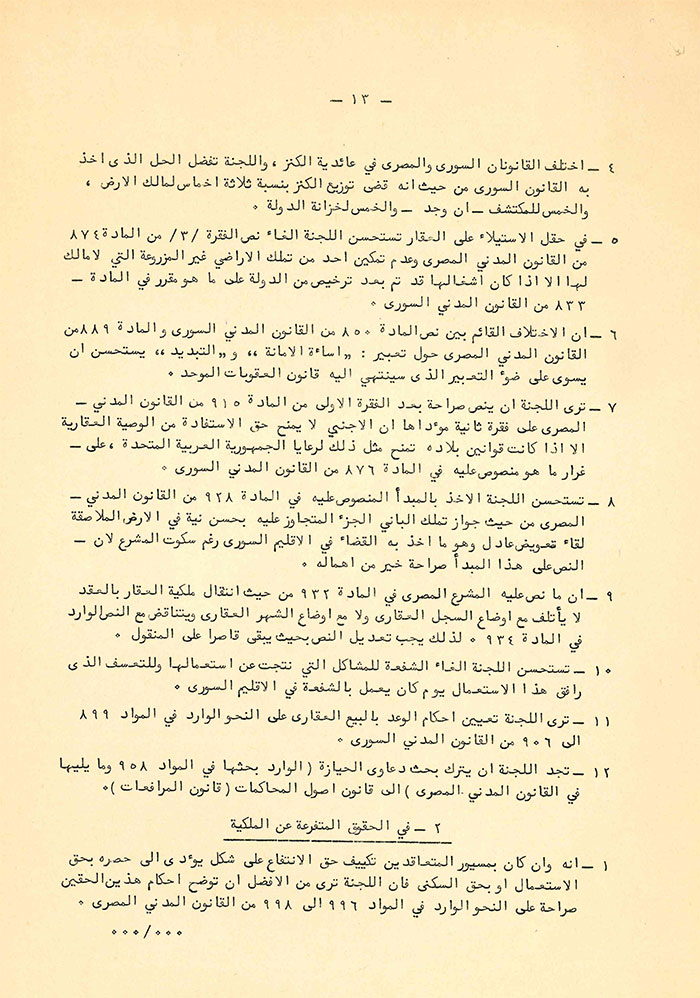 — ١٣ —
٤ — اختلف القانونان السورى والمصرى في عائدية الكنز ، واللجنة تفضل الحل الذى اخذ
به القانون السورى من حيث انه قضى توزيع الكنز بنسبة ثلاثة اخماس لمالك الارض ،
والخمس للمكتشف — ان وجد — والخمس لخزانة الدولة ٠
٥ — في حقل الاستيلاء على العقار تستحسن اللجنة الغاء نص الفقرة /٣/ من المادة ٨٧٤
من القانون المدني المصرى وعدم تمكين احد من تملك الاراضي غير المزروعة التي لا مالك
لها الا اذا كان اشغالها قد تم بعد ترخيص من الدولة على ما هو مقرر في المادة —
٨٣٣ من القانون المدني السورى ٠
٦ — ان الاختلاف القائم بين نص المادة ٨٥٠ من القانون المدني السورى و المادة ٨٨٩ من
القانون المدني المصرى حول تعبير : ,,اساءة الامانة ،، و ,,التبديد ،، يستحسن ان
يسوى على ضوء التعبير الذى سينتهي اليه قانون العقوبات الموحد ٠
٧ — ترى اللجنة ان ينص صراحة بعد الفقرة الاولى من المادة ٩١٥ من القانون المدني —
المصرى على فقرة ثانية موءداها ان الاجنبي لا يمنح حق الاستفادة من الوصية العقارية
الا اذا كانت قوانين بلاده تمنح مثل ذلك لرعايا الجمهورية العربية المتحدة ، على —
غرار ما هو منصوص عليه في المادة ٨٧٦ من القانون المدني السورى ٠
٨ — تستحسن اللجنة الاخذ بالمبدأ المنصوص عليه في المادة ٩٢٨ من القانون المدني —
المصرى من حيث جواز تملك الباني الجزء المتجاوز عليه بحسن نية في الارض الملاصقة
لقاء تعويض عادل وهو ما اخذ به القضاء في الاقليم السورى رغم سكوت المشرع لان —
النص على هذا المبدأ صراحة خير من اهماله ٠
٩ — ان ما نص عليه المشرع المصرى في المادة ٩٣٢ من حيث انتقال ملكية العقار بالعقد
لا يأتلف مع اوضاع السجل العقارى ولا مع اوضاع الشهر العقارى ويتناقض مع النص الوارد
في المادة ٩٣٤ ٠ لذلك يجب تعديل النص بحيث يبقى قاصرا على المنقول ٠
١٠ — تستحسن اللجنة الغاء الشفعة للمشاكل التي نتجت عن استعمالها وللتعسف الذى
رافق هذا الاستعمال يوم كان يعمل بالشفعة في الاقليم السورى ٠
١١ — ترى اللجنة تعيين احكام الوعد بالبيع العقارى على النحو الوارد في المواد ٨٩٩
الى ٩٠٦ من القانون المدني السورى ٠
١٢ — تجد اللجنة ان يترك بحث دعاوى الحيازة ( الوارد بحثها في المواد ٩٥٨ وما يليها
في القانون المدني المصرى ) الى قانون اصول المحاكمات ( قانون المرافعات )٠
٢ — في الحقوق المتفرعة عن الملكية
١ — انه وان كان بمسيور المتعاقدين تكييف حق الانتفاع على شكل يوءدى الى حصره بحق
الاستعمال او بحق السكنى فان اللجنة ترى من الافضل ان توضح احكام هذين الحقين
صراحة على النحو الوارد في المواد ٩٩٦ الى ٩٩٨ من القانون المدني المصرى ٠
٠٠٠/٠٠٠